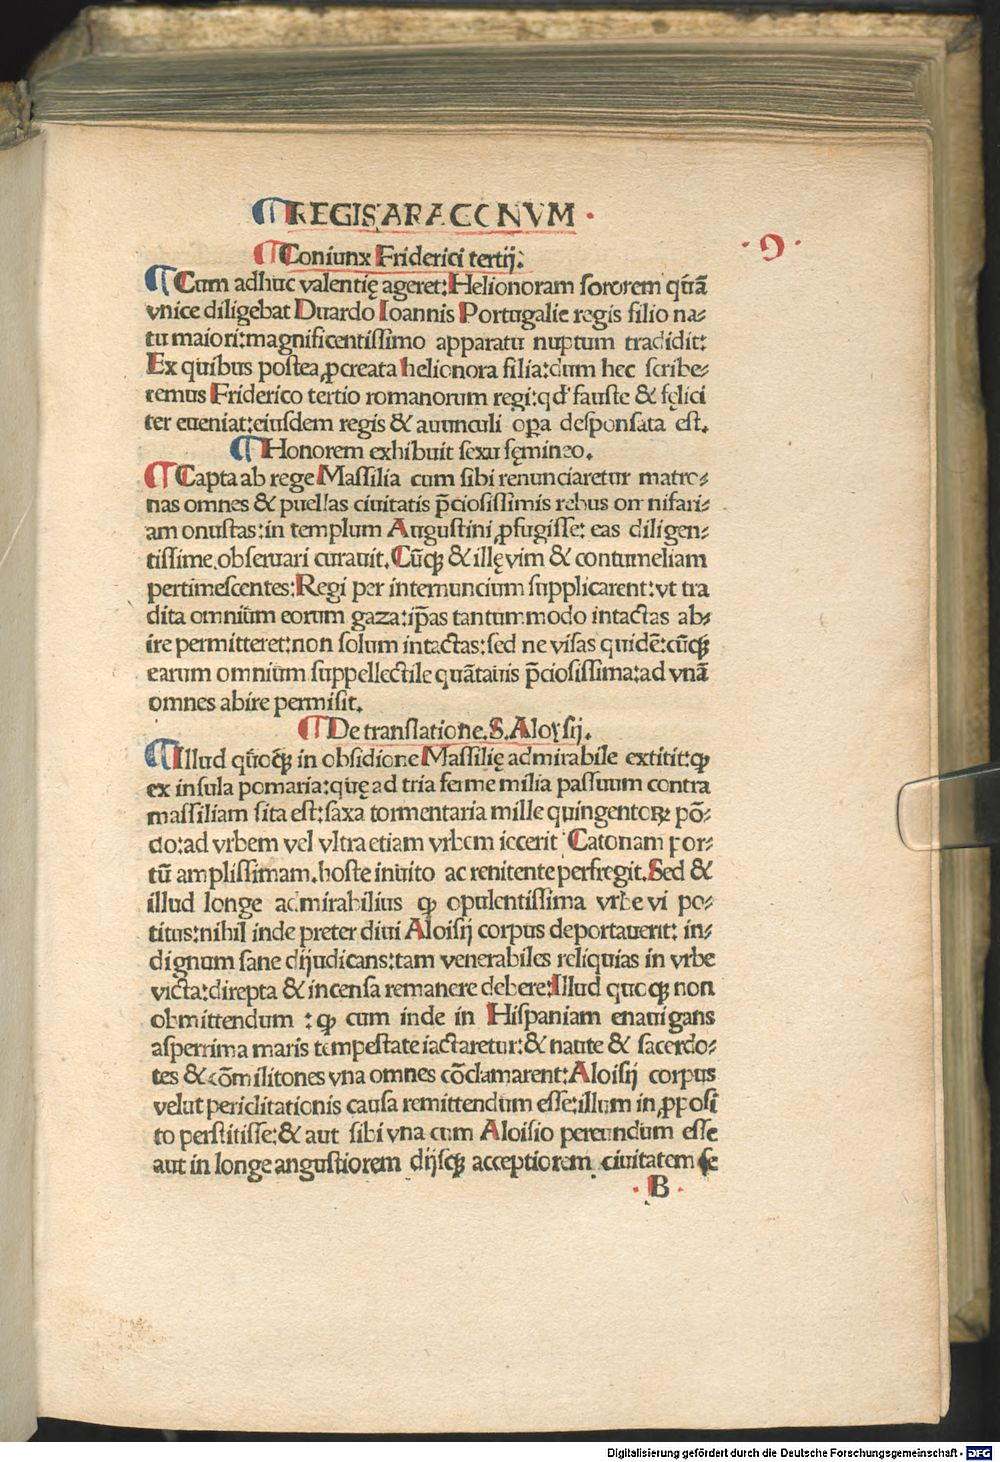 ¶REGIS ARAGONVM ·
· 9 ·
¶Coniunx Friderici tertij:
¶Cum adhuc valentię ageret: Helionoram sororem quā
vnice diligebat Duardo Ioannis Portugalie regis filio na-
tu maiori: magnificentissimo apparatu nuptum tradidit:
Ex quibus postea ꝓcreata helionora filia: dum hec scribe-
remus Friderico tertio romanorum regi: qd' fauste & fęlici
ter eueniat: eiusdem regis & auunculi oꝑa desponsata est.
¶Honorem exhibuit sexu fęmineo.
¶Capta ab rege Massilia cum sibi renunciaretur matro-
nas omnes & puellas ciuitatis p̄ciosissimis rebus omnifari-
am onustas: in templum Augustini ꝓfugisse: eas diligen-
tissime obseruari curauit. Cūqꝫ & illę vim & contumeliam
pertimescentes: Regi per internuncium supplicarent: vt tra
dita omnium eorum gaza: ip̄as tantummodo intactas ab-
ire permitteret: non solum intactas: sed ne visas quidē: cūqꝫ
earum omnium suppellectile quātauis p̄ciosissima: ad vnā
omnes abire permisit.
¶De translatione. S. Aloysij.
¶Illud quoqꝫ in obsidione Massilię admirabile extitit: ꝙ
ex insula pomaria: quę ad tria ferme milia passuum contra
massiliam sita est: saxa tormentaria mille quingentoꝝ pō-
do: ad vrbem vel vltra etiam vrbem iecerit Catonam por-
tū amplissimam. hoste inuito ac renitente perfregit. Sed &
illud longe admirabilius ꝙ opulentissima vrbe vi po-
titus: nihil inde preter diui Aloisij corpus deportauerit: in-
dignum sane dijudicans: tam venerabiles reliquias in vrbe
victa: direpta & incensa remanere debere: Illud quoqꝫ non
obmittendum : ꝙ cum inde in Hispaniam enauigans
asperrima maris tempestate iactaretur: & naute & sacerdo-
tes & cōmilitones vna omnes cōclamarent: Aloisij corpus
velut periditationis causa remittendum esse: illum in ꝓposi
to perstitisse: & aut sibi vna cum Aloisio pereundum esse
aut in longe angustiorem dijsqꝫ acceptiorem ciuitatem se
· B ·
Digitalisierung gefördert durch die Deutsche Forschungsgemeinschaft - DFG